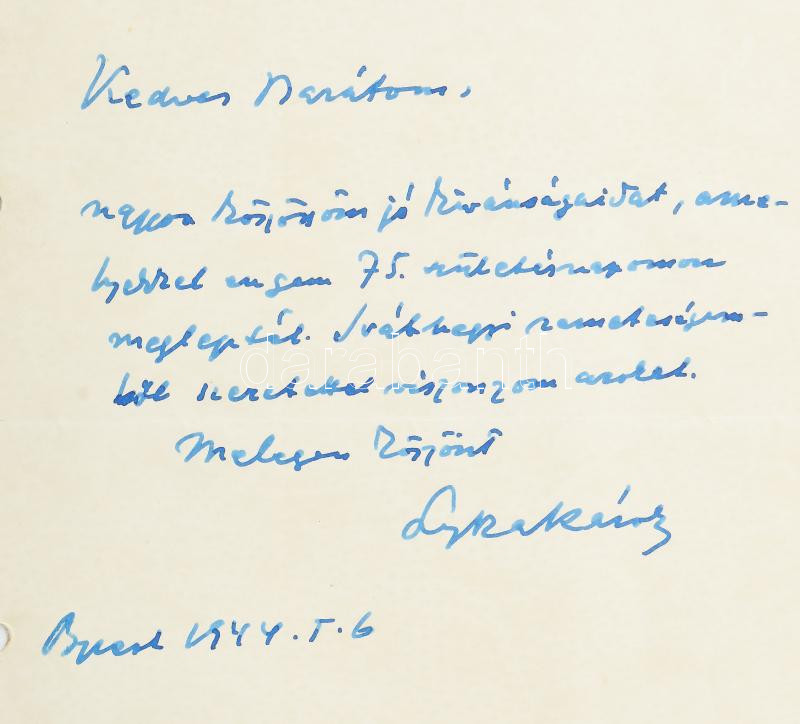 Kedves Barátom,
nagyon köszönöm jó kivánságaidat, ame-
lyekkel engem 75. születésnapomon
megleptél. Svábhegyi remeteségem-
ből szeretettel viszonzom azokat.
Melegen köszönt
Lyka Károly
Bpest 1944.I.6
darabanth